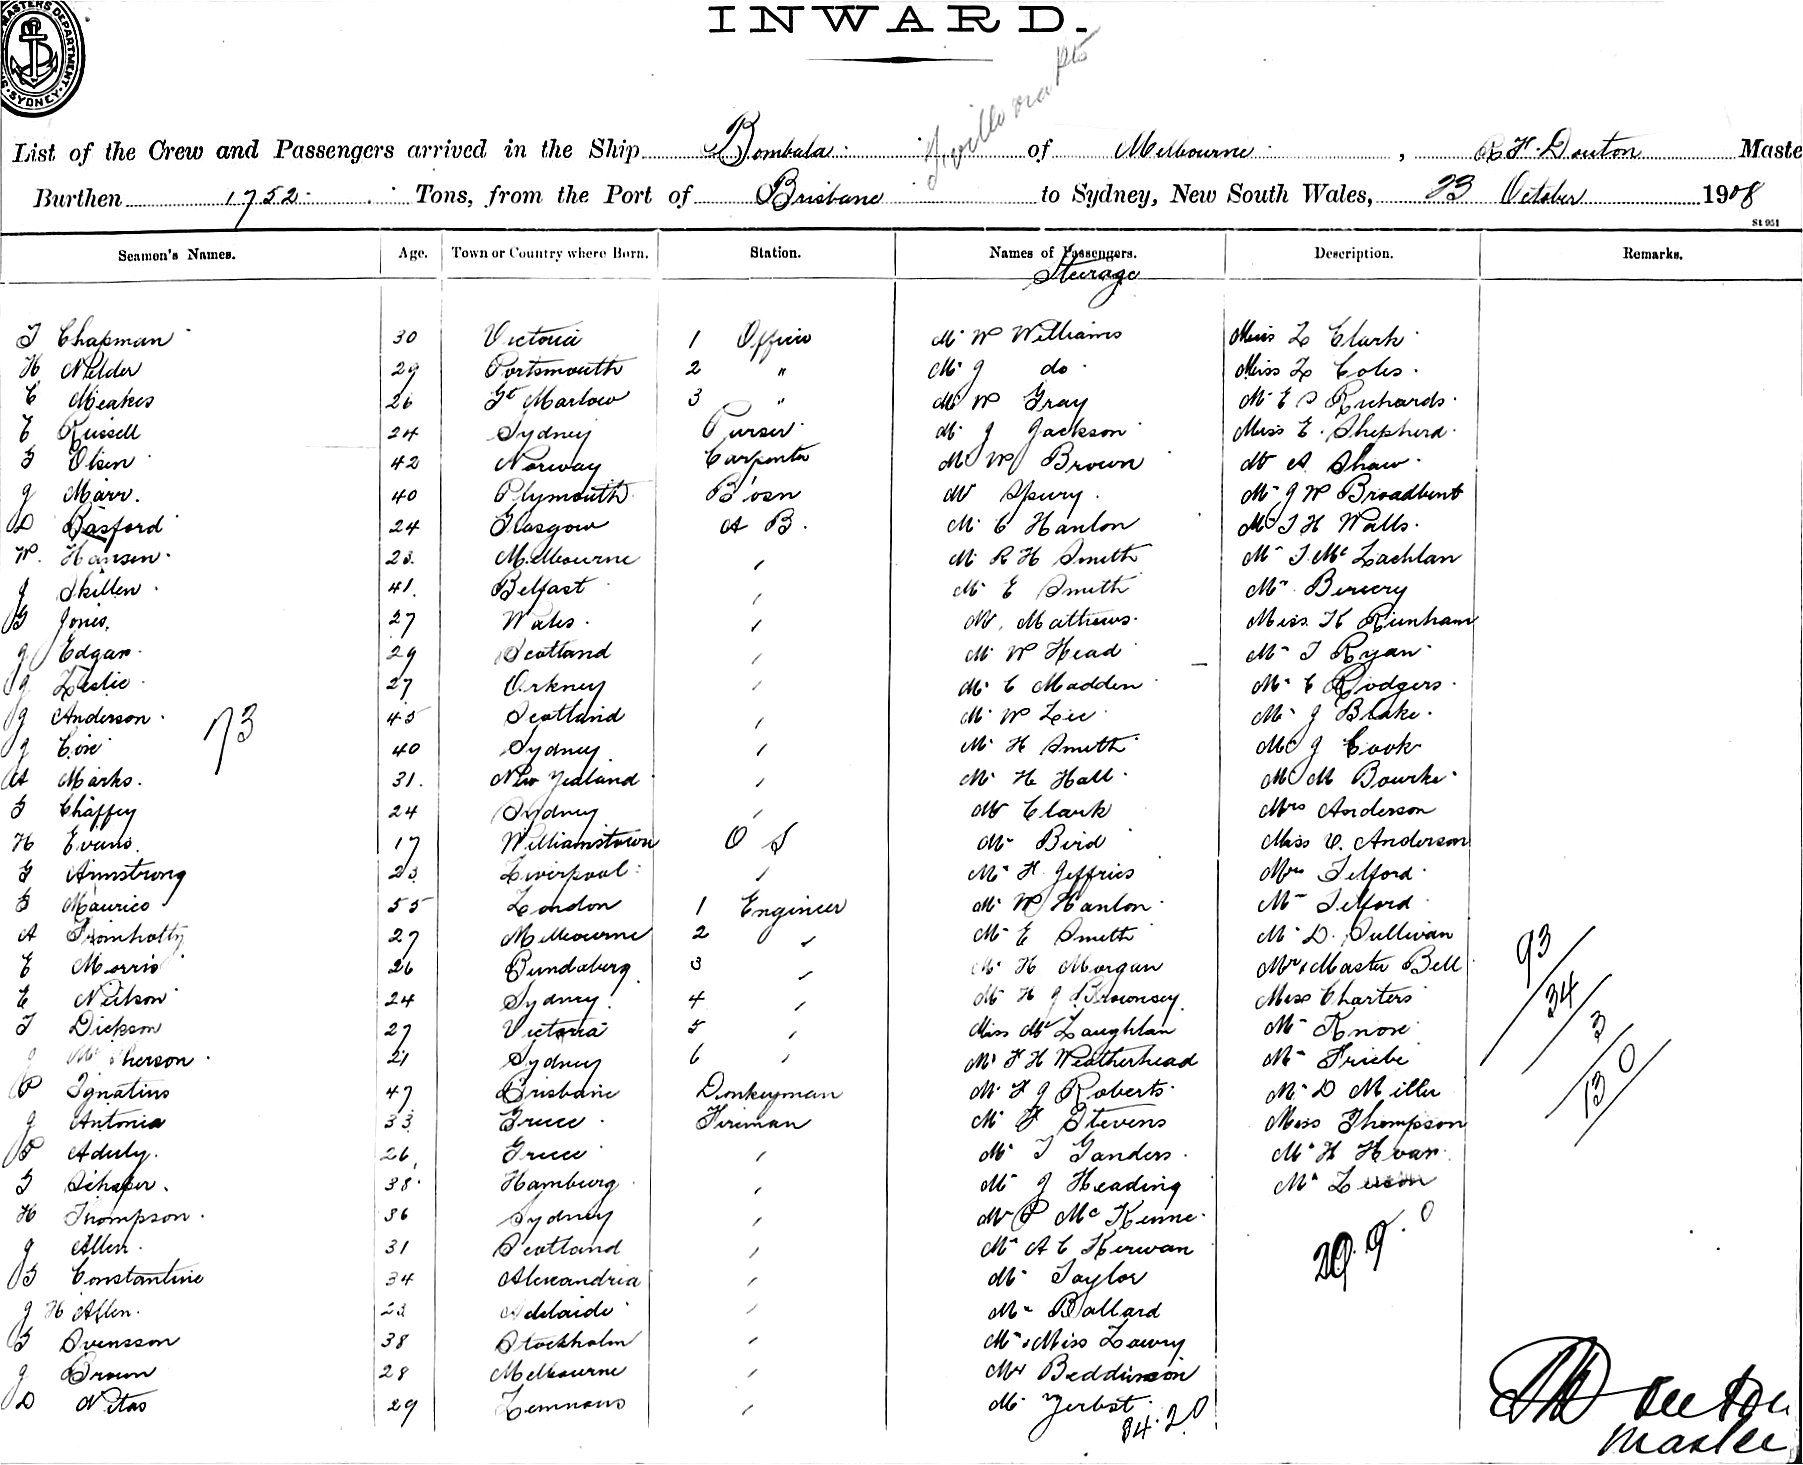 MASTERS DEPARTMENT SYDNEY
INWARD.
List of the Crew and Passengers arrived in the Ship Bombala of Melbourne, R H Douton Maste
Burthen 1752 Tons, from the Port of Brisbane to Sydney, New South Wales, 23 October 1908
St 951
Seamen's Names. Age. Town or Country where Born. Station. Names of Passengers. Description. Remarks.
Steerage
T Chapman 30 Victoria 1 Officer Mr W Williams Miss L Clark
H Nelder 29 Portsmouth 2 " Mr J do Miss L Coles.
C Meakes 26 Gt Marlow 3 " Mr W Gray Mr E S Richards.
E Russell 24 Sydney Purser Mr J Jackson Miss E. Shepherd
F Olsen 42 Norway Carpenter Mr W Brown Mr A Shaw.
J Marr. 40 Plymouth Bosn Mr Spury. Mr J W Broadbent
D Basford 24 Glasgow A B. Mr C Hanlon Mr T H Walls.
W. Hansen 23. Melbourne Mr R H Smith Mr T McLachlan
J Skillen 41. Belfast Mr E Smith Mr
B Jones. 27 Wales. Mr. Mathews. Miss K Runham
J Edgar 29 Scotland Mr W Head Mr T Ryan
J Leslie 27 Orkney Mr C Madden Mr C Rodgers
J Anderson 45 Scotland Mr W Lee Mr J Blake.
73
J Coxe 40 Sydney Mr H Smith Mr J Cook
A Marks. 31. New Zealand Mr H Hall Mr M Bourke
F Chaffey 24 Sydney Mr Clark Mrs Anderson
H Evans. 17 Williamstown O S Mr Bird Miss V. Anderson
G Armstrong 23 Liverpool Mr H. Jeffries Mrs Telford
F Maurice 55 London 1 Engineer Mr W Hanlon Mr Telford
A Tromholtz 27 Melbourne 2 Mr E Smith Mr D. Sullivan
E Morris 26 Bundaberg 3 Mr H Morgan Mr & Master Bell
C Neilson 24 Sydney 4 Mr H J Miss Charters
T Dickson 27 Victoria 5 Miss McLaughlan Mr Knox
J McPherson 21 Sydney 6 Mr F H Weatherhead Mr Friebe
P Ignatius 47 Brisbane Donkeyman Mr H J Roberts Mr D Miller
J Antonia 33 Greece Fireman Mr F Stevens Miss Thompson
P Aduly. 26 Greece Mr T Ganders Mr H Hoar
F Schafer. 38 Hamburg Mr J Heading Mr
H Thompson 36 Sydney Mr P McKenne
J Allen 31 Scotland Mr A C Kerwan
B Constantine 34 Alexandria Mr Taylor
J H Allen. 23 Adelaide Mr Ballard
F Svensson 38 Stockholm Mr & Miss Lowry
J Brown 28 Melbourne Mr Beddinson
D Nitas 29 Lemnous Mr Zerbst
34.2.0
29.9.0
93
34
3
130
R H Douton
Master